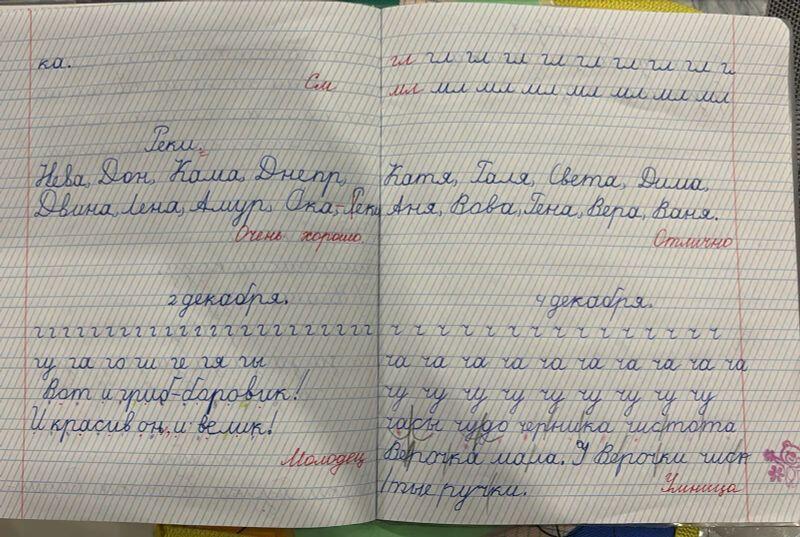 ка.
См
Реки.
Нева, Дон, Кама, Днепр,
Двина, Лена, Амур, Ока, - Реки
Очень хорошо.
2 декабря.
г г г г г г г г г г г г г г г г г г г г г г г
гу га го ги ге гя гы
Вот и гриб-боровик!
И красив он, и велик!
Молодец
гл гл гл гл гл гл гл гл гл г
мл мл мл мл мл мл мл мл
Катя, Галя, Света, Дима,
Аня, Вова, Гена, Вера, Ваня.
Отлично
4 декабря.
ч ч ч ч ч ч ч ч ч ч ч ч ч ч ч
ча ча ча ча ча ча ча ча ча ча
чу чу чу чу чу чу чу чу чу
часы чудо черника чистота
Верочка мала. У Верочки чис
тые ручки.
Умница